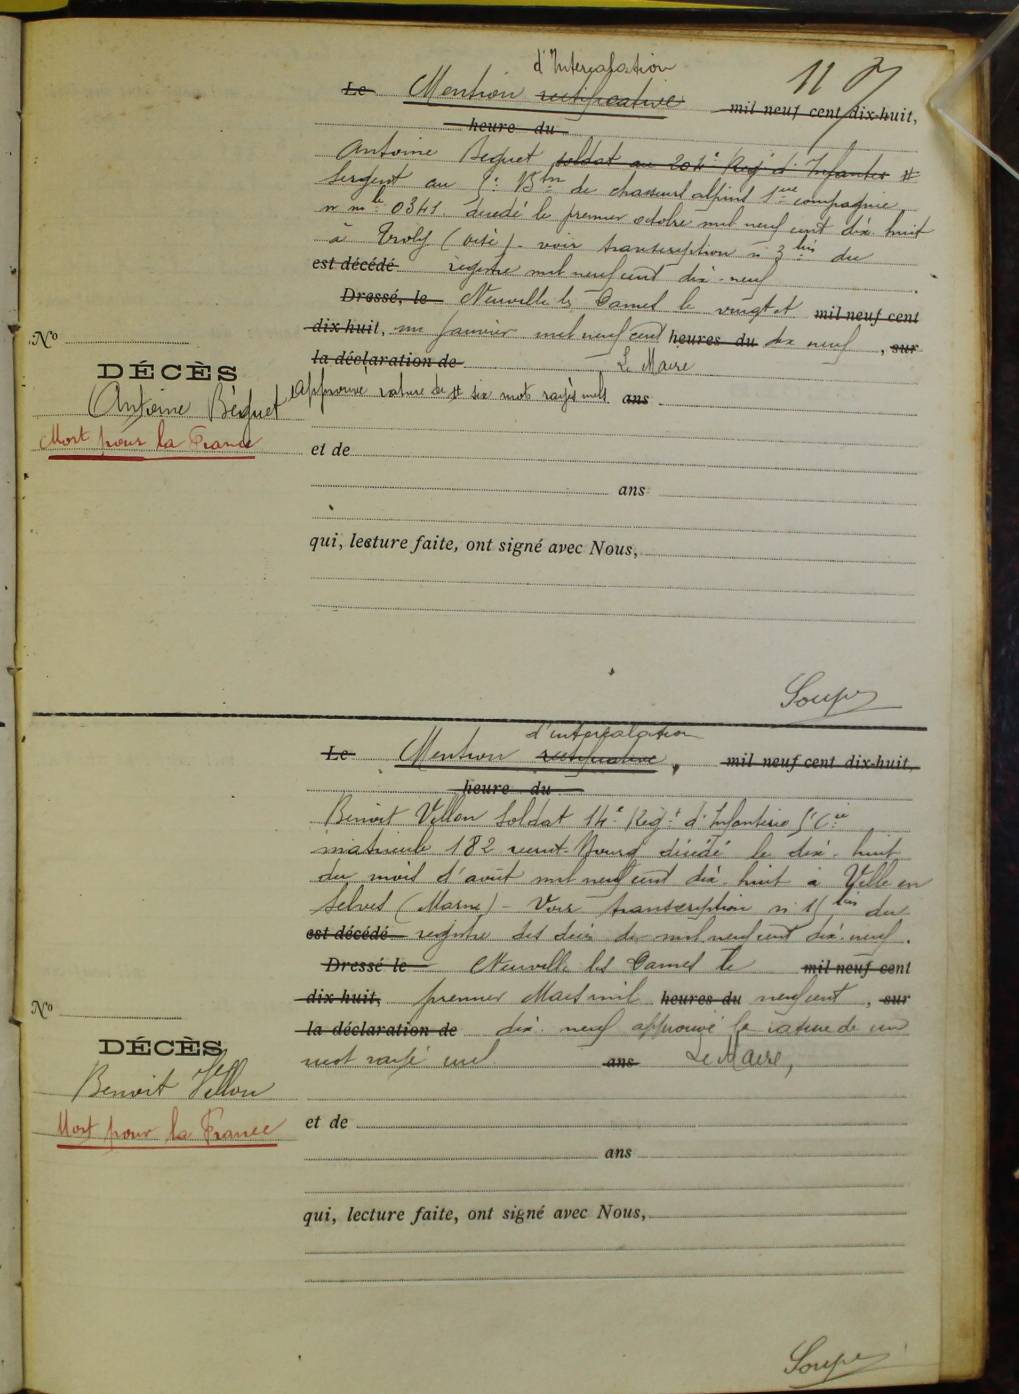 11
d'Intercalation
Le Mention rectificative mil neuf cent dix-huit,
heure du
Antoine Bequet soldat au 204e Reg d'Infanterie #
Sergent au 5e Btn de chasseurs alpins 1re compagnie
n mle 0341. décédé le premier octobre mil neuf cent dix-huit
à Troly (Oise) - voir transcription n 3 bis du
est décédé registre mil neuf cent dix-neuf
Dressé, le Neuville les Dames le vingt et mil neuf cent
dix-huit, un janvier mil neuf cent heures du dix neuf, sur
la déclaration de Le Maire
approuve rature de # six mots rayés nuls ans
et de
ans
qui, lecture faite, ont signé avec Nous,
No
DÉCÈS
Antoine Béquet
Mort pour la France
Soupe
d'intercalation
Le Mention rectificative, mil neuf cent dix-huit,
heure du
Benoit Vellon Soldat 14e Regt d'Infanterie 5e Cie
matricule 182 recrut. Bourg décédé le dix-huit
du mois d'août mil neuf cent dix-huit à Ville en
Selves (Marne) - Voir transcription n 15 bis du
est décédé registre des décès de mil neuf cent dix-neuf.
Dressé le Neuville les Dames le mil neuf cent
dix-huit, premier Mars mil heures du neuf cent, sur
la déclaration de dix-neuf approuvé la rature de un
mot rayé nul ans Le Maire,
et de
ans
qui, lecture faite, ont signé avec Nous,
No
DÉCÈS
Benoit Vellon
Mort pour la France
Soupe